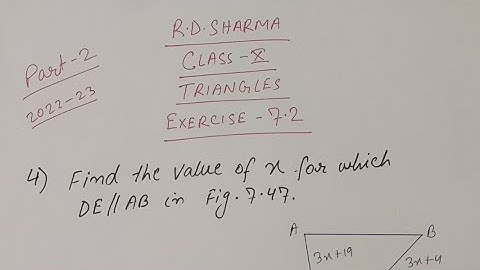 R.D. SHARMA
Part-2
CLASS-X
2022-23
TRIANGLES
EXERCISE - 7.2
4) Find the value of x for which
DE//AB in Fig. 7.47.
A
B
3x+19
3x+4